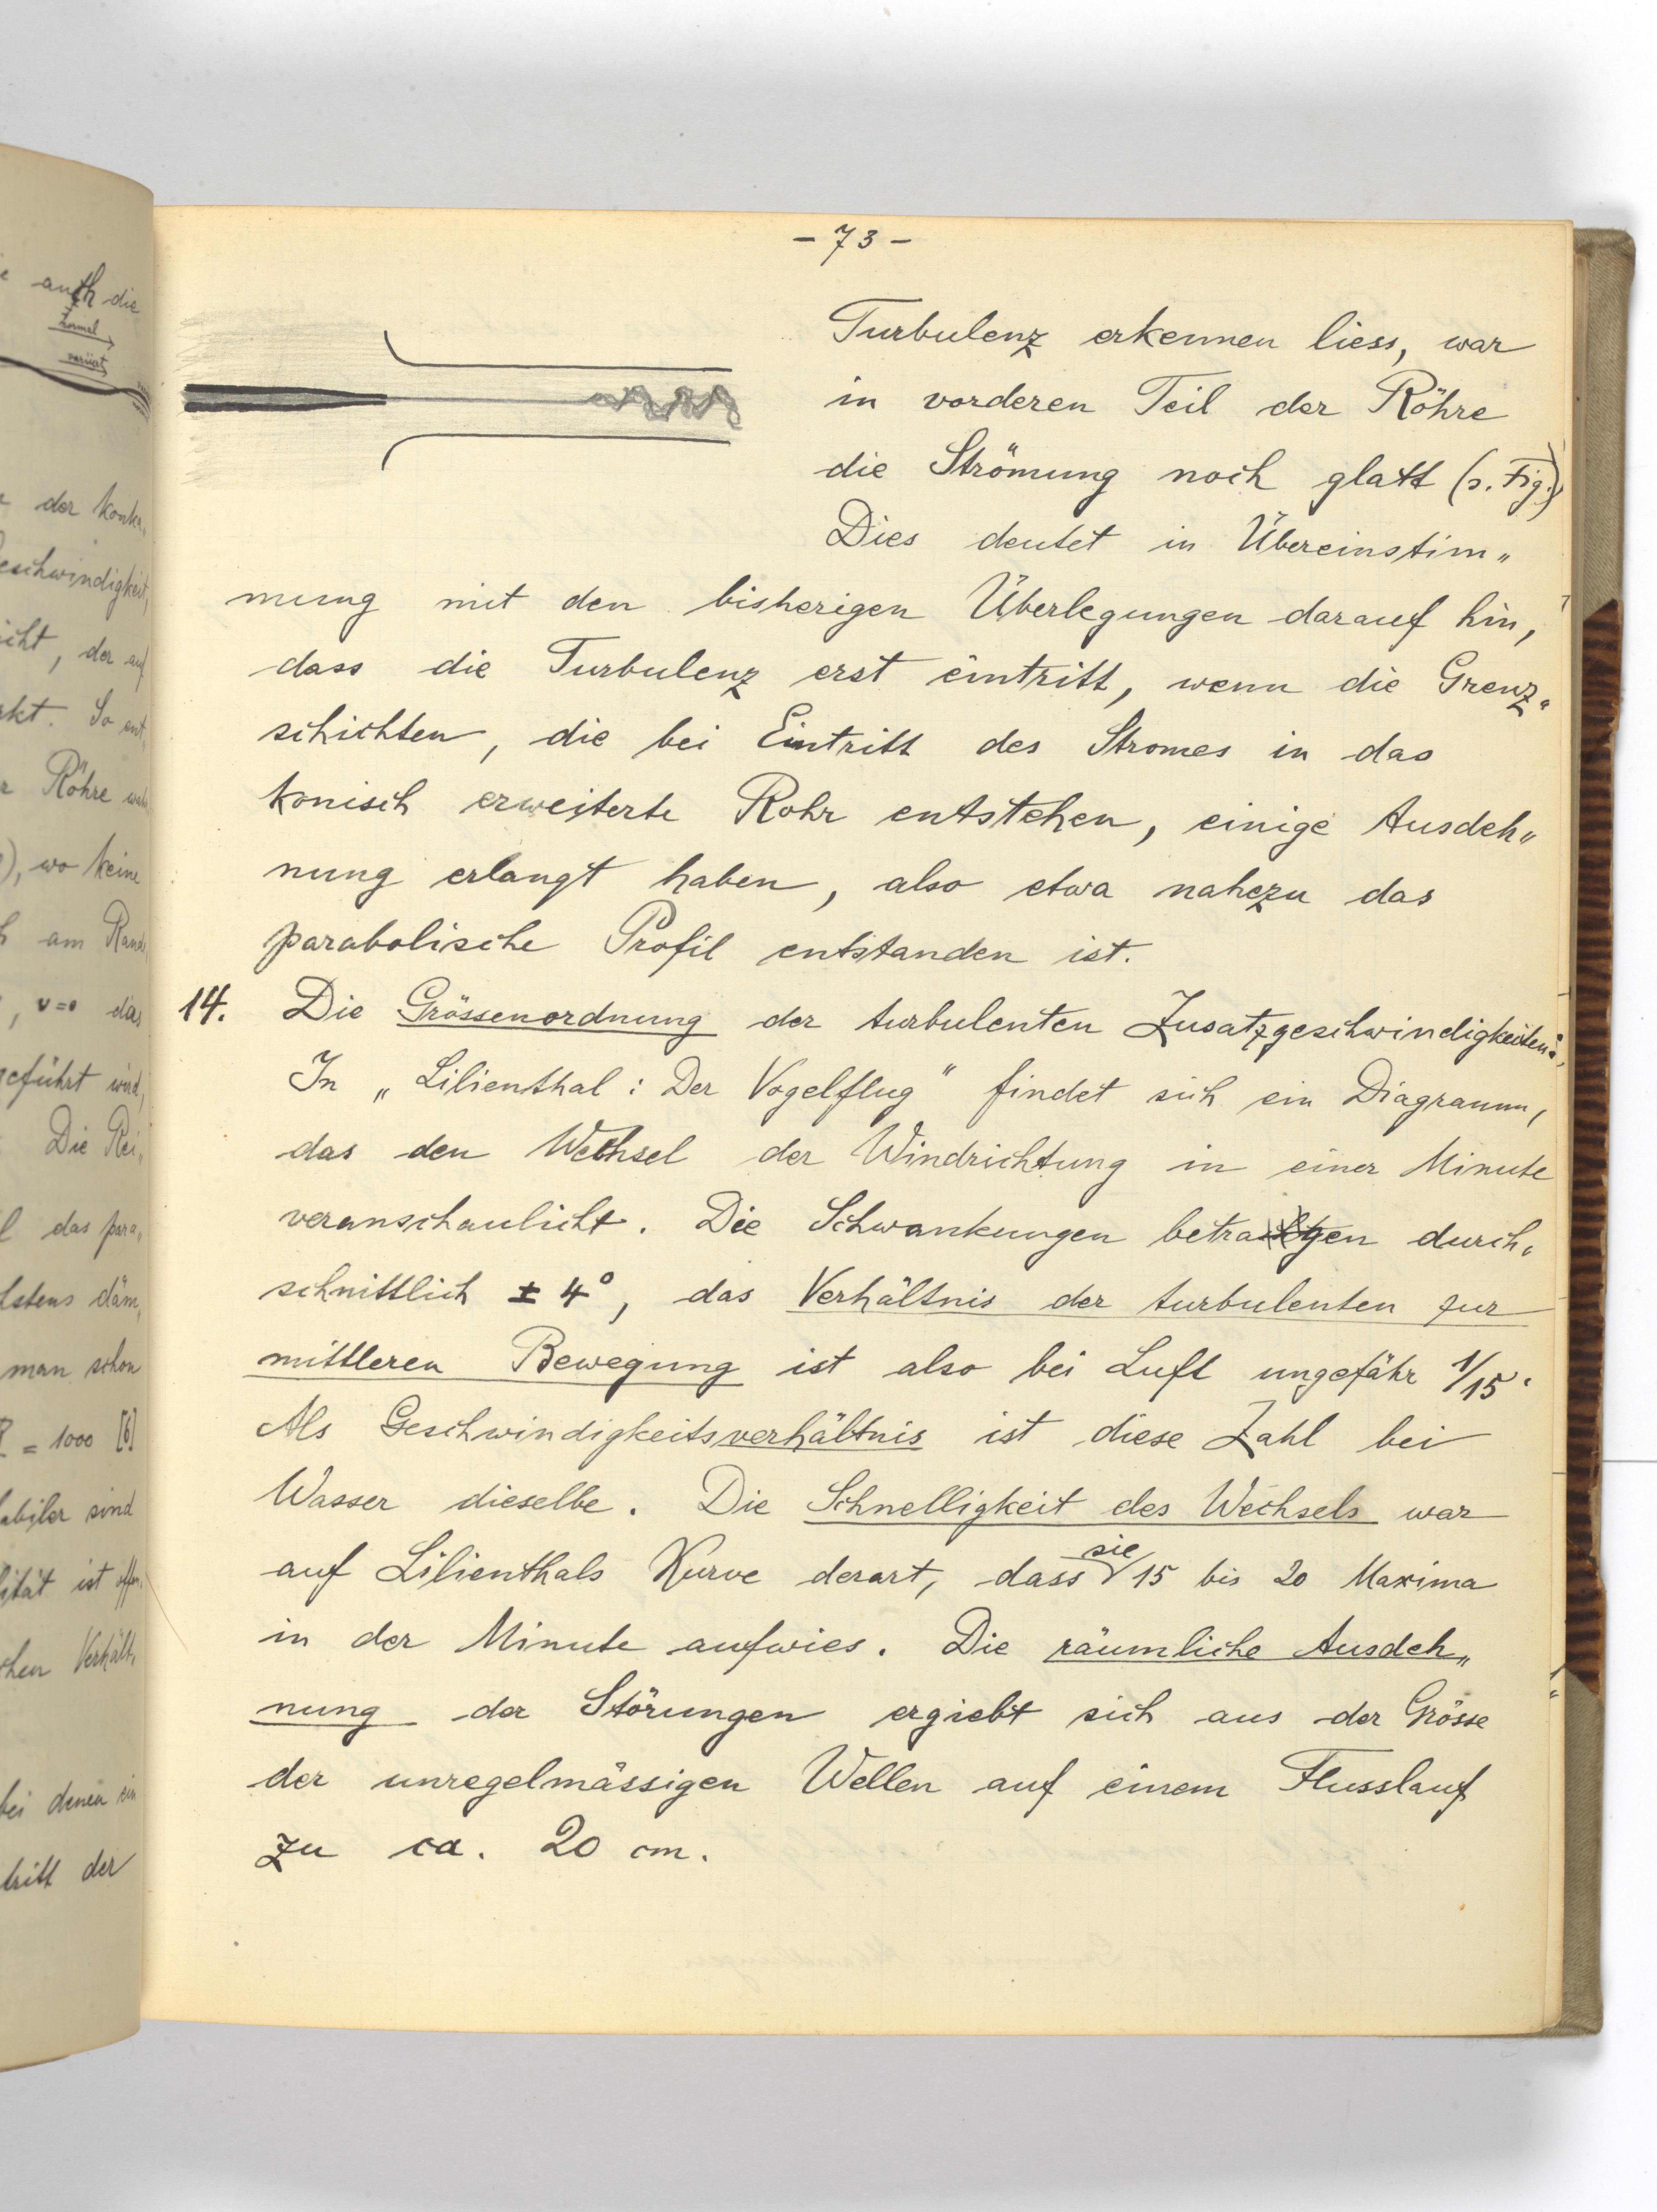 - 73 -
Turbulenz erkennen liess, war
in vorderen Teil der Röhre
die Strömung noch glatt (s. Fig.)
Dies deutet in Übereinstim„
mung mit den bisherigen Überlegungen darauf hin,
dass die Turbulenz erst eintritt, wenn die Grenz„
schichten, die bei Eintritt des Stromes in das
konisch erweiterte Rohr entstehen, einige Ausdeh„
nung erlangt haben, also etwa nahezu das
parabolische Profil entstanden ist.
14. Die Grössenordnung der turbulenten Zusatzgeschwindigkeiten:
In „Lilienthal: Der Vogelflug" findet sich ein Diagramm,
das den Wechsel der Windrichtung in einer Minute
veranschaulicht. Die Schwankungen betragen durch„
schnittlich ± 4°, das Verhältnis der turbulenten zur
mittleren Bewegung ist also bei Luft ungefähr 1/15.
Als Geschwindigkeitsverhältnis ist diese Zahl bei
Wasser dieselbe. Die Schnelligkeit des Wechsels war
auf Lilienthals Kurve derart, dass sie 15 bis 20 Maxima
in der Minute aufwies. Die räumliche Ausdeh„
nung der Störungen ergiebt sich aus der Grösse
der unregelmässigen Wellen auf einem Flusslauf
zu ca. 20 cm.
auch die
normal
der konka„
eschwindigkeit,
icht, der auf
rkt. So ent„
r Röhre
), wo keine
am Rande
, v=0 das
geführt wird,
Die Rei„
das para„
man schon
= 1000 [6]
sind
ität ist
chen Verhält„
bei denen ein
tritt der